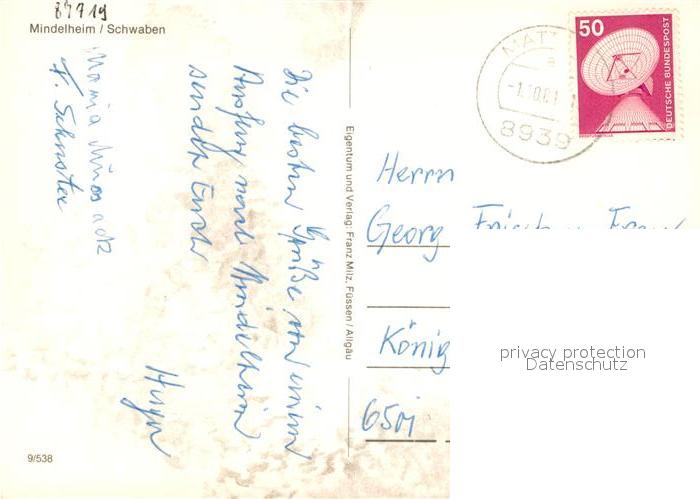 87719
Mindelheim / Schwaben
Die besten Grüße von einem
Ausflug nach Mindelheim
sendet Euch
Maria
9/538
Eigentum und Verlag: Franz Milz, Füssen / Allgäu
MATT
-1.10.81
8939
50
DEUTSCHE BUNDESPOST
Herrn
Georg
König
privacy protection
Datenschutz